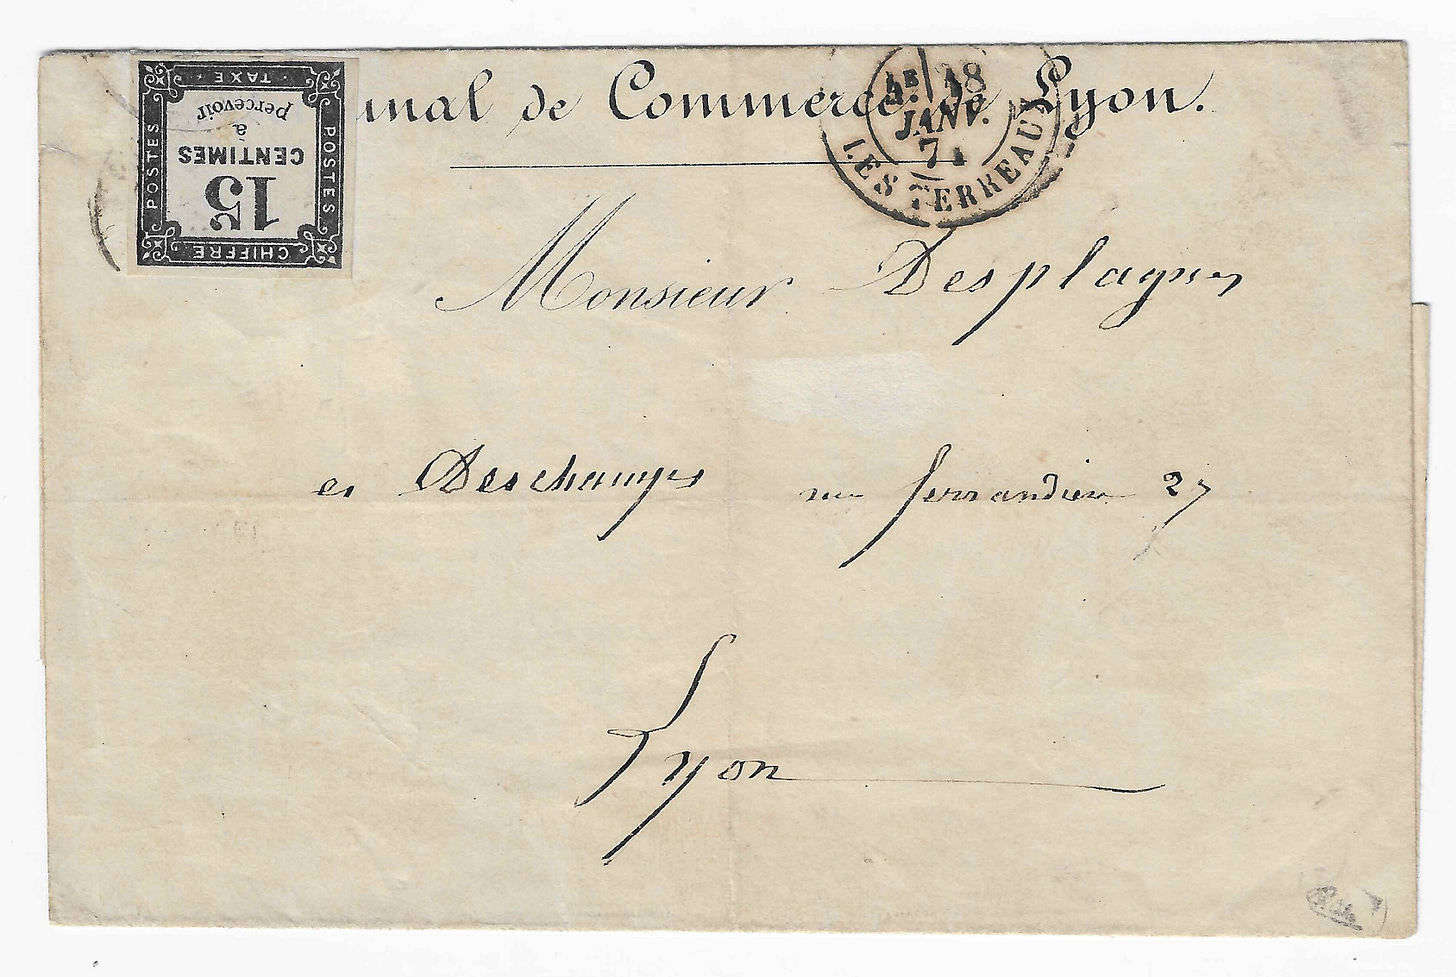 unal de Commerce de Lyon.
CHIFFRE
15
CENTIMES
à
percevoir
TAXE
POSTES
POSTES
4E 18
JANV.
71
LES TERREAUX
Monsieur Desplagnes
et Deschamps rue ferrandière 27
Lyon